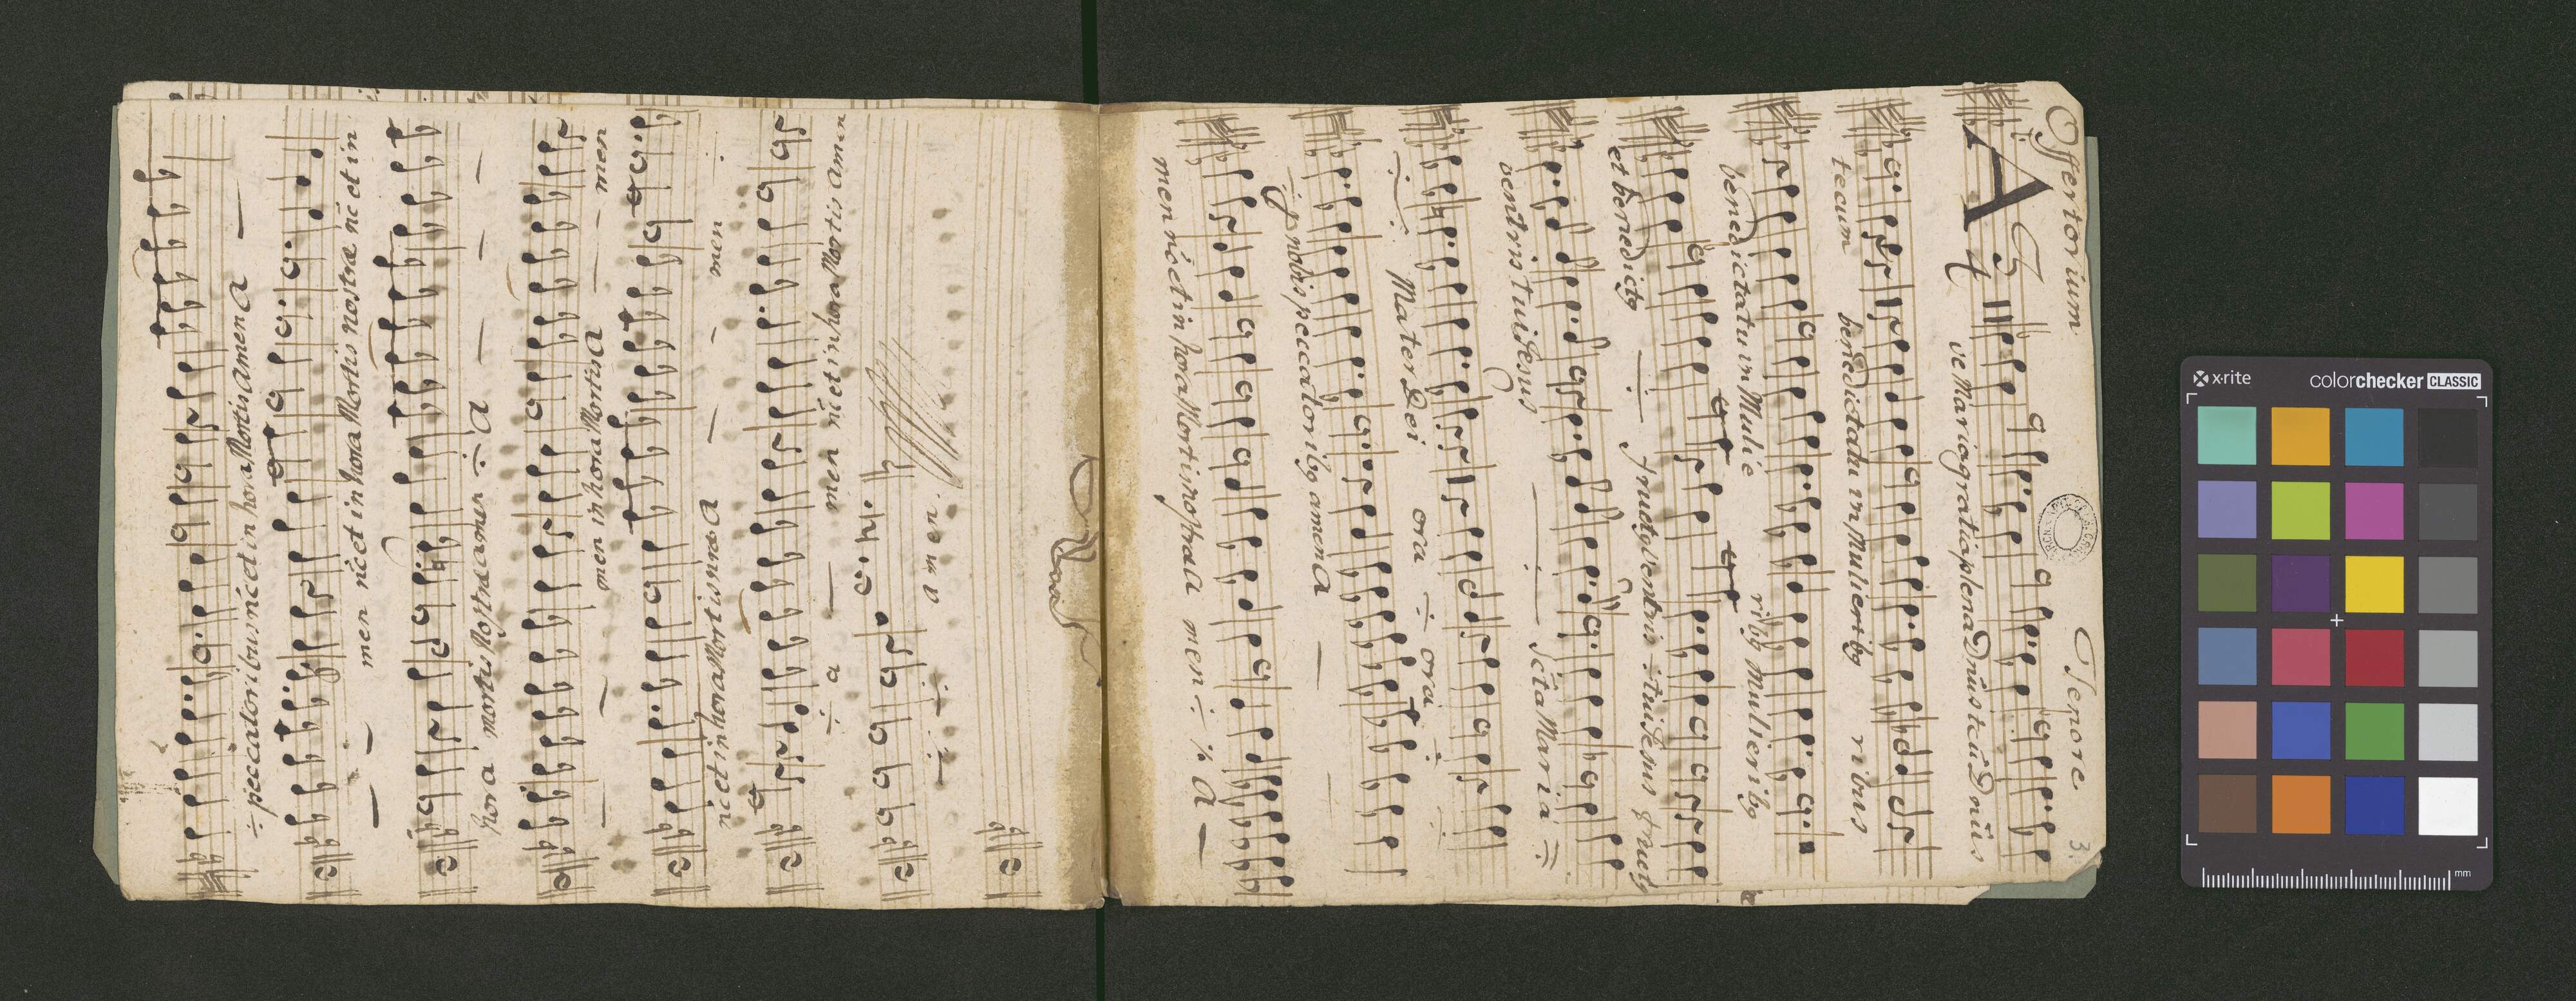 Offertorium. Tenore
3.
A ve Maria gratia plena Dnus tecū Dnūs
tecum benedictatu in mulieribq ribus
benedictatu in Mulie ribq Mulieribq
et benedictq fructq ventris tui Jesus fructq
ventris tui Jesus Scta Maria
Mater Dei ora ÷ ora ÷
nobis peccatoribq amen a
men nc̄ et in hora Mortis nostra a men ÷ ٪ a
÷ peccatoribus nc̄ et in hora Mortis Amen a
men nc̄ et in hora Mortis nostræ nc̄ et in
hora mortis Nostræ amen ÷ a
men in hora Mortis a men
nc̄ et in hora Mortis nr̄a a men
÷ a men nc̄ et in hora Mortis amen
amen.
x-rite colorchecker CLASSIC
mm